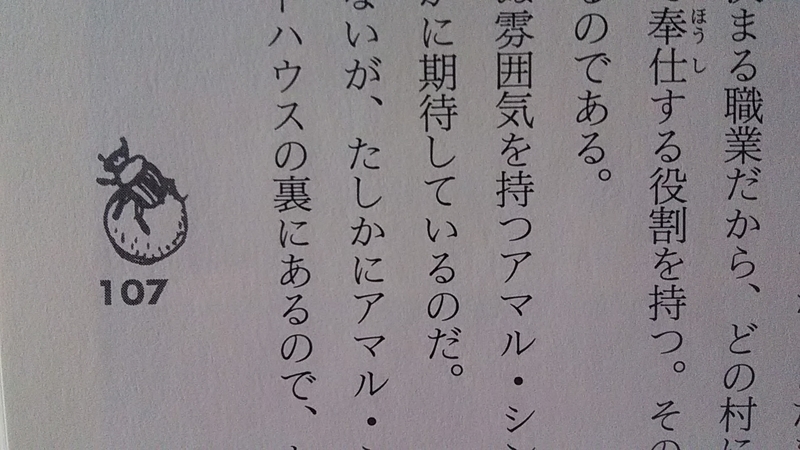 まる職業だから、どの村に
奉仕する役割を持つ。その
ほうし
のである。
雰囲気を持つアマル・シン
に期待しているのだ。
ないが、たしかにアマル・
ーハウスの裏にあるので、
107